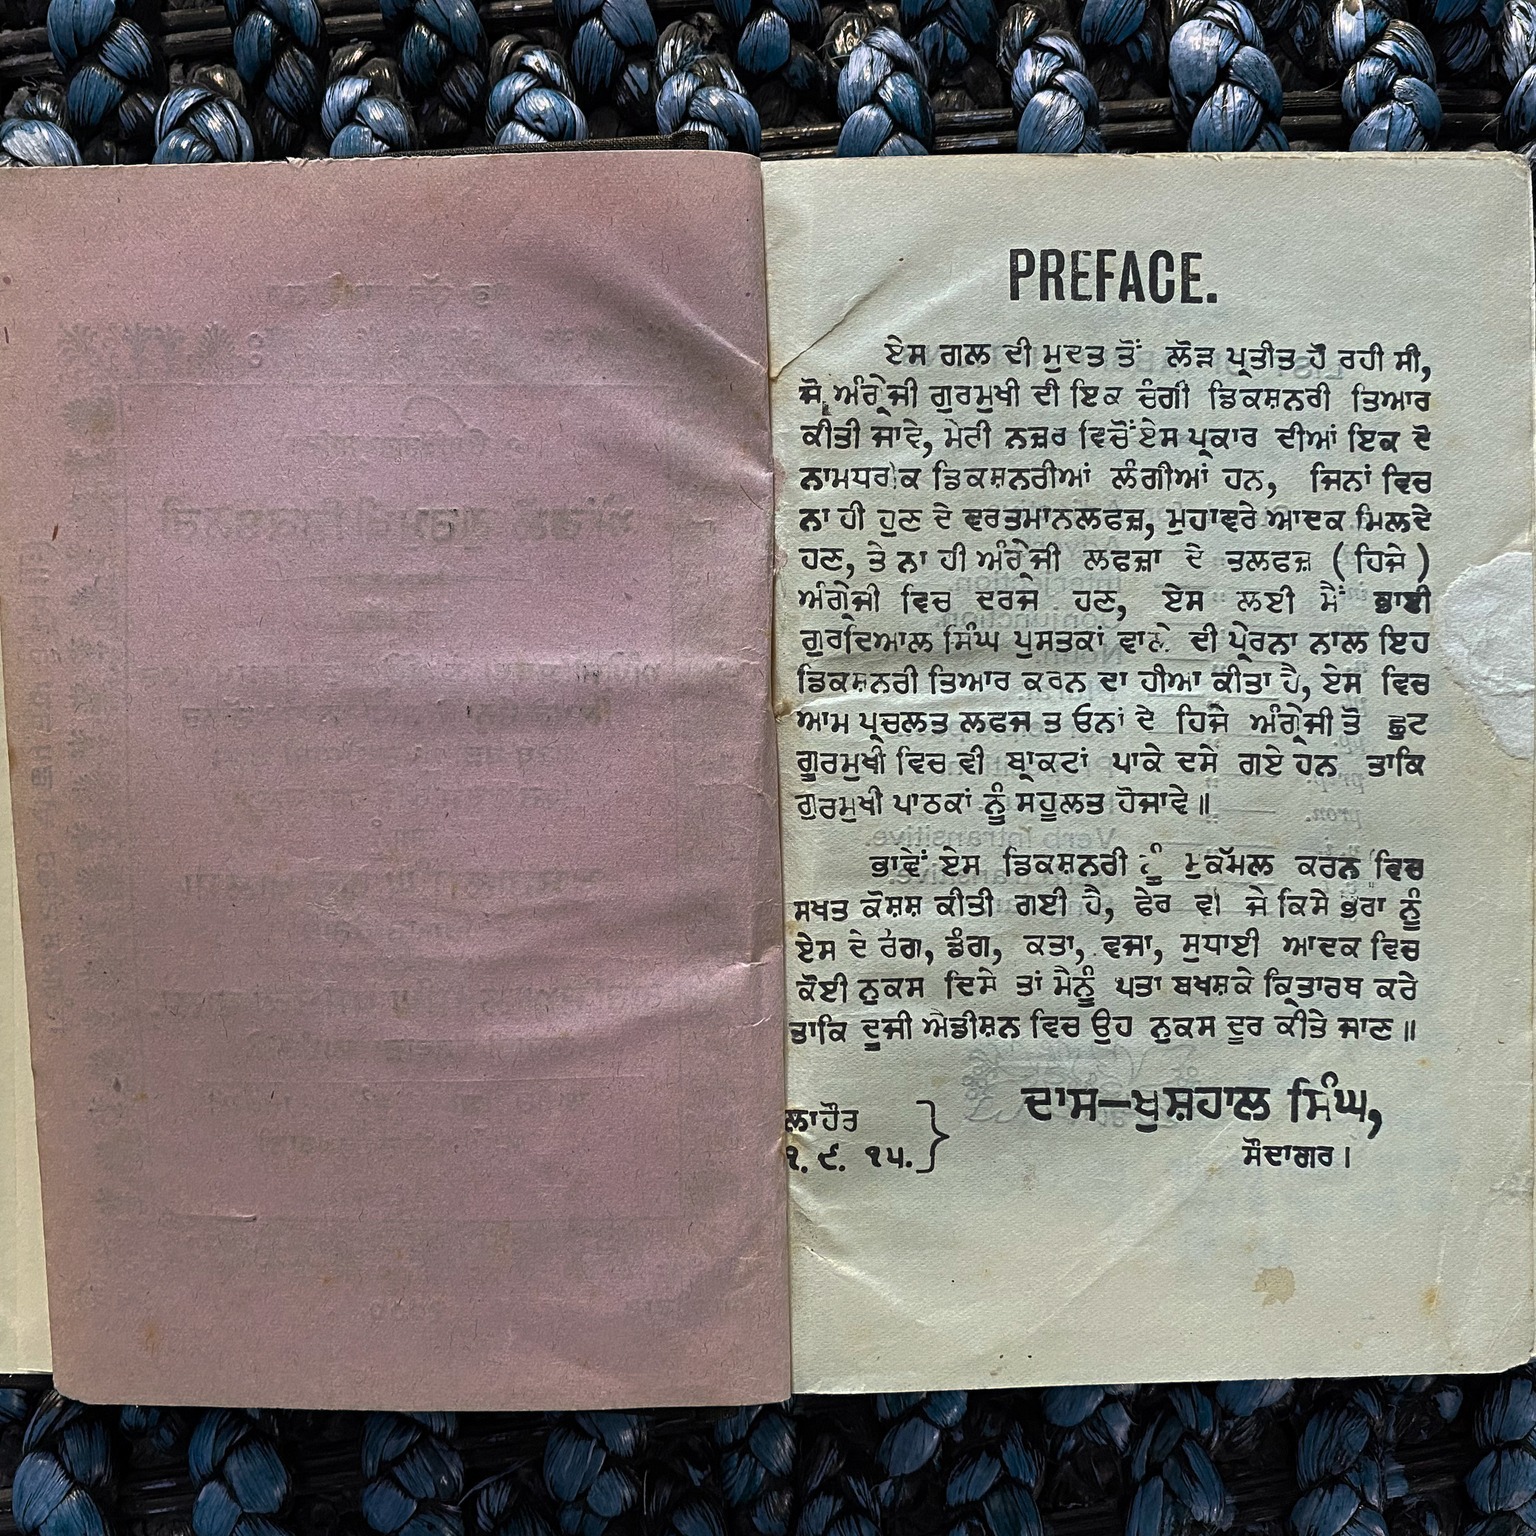 PREFACE.
ਏਸ ਗਲ ਦੀ ਮੁਦਤ ਤੋਂ ਲੋੜ ਪ੍ਰਤੀਤ ਹੋ ਰਹੀ ਸੀ,
ਜੋ ਅੰਗ੍ਰੇਜੀ ਗੁਰਮੁਖੀ ਦੀ ਇਕ ਚੰਗੀ ਡਿਕਸ਼ਨਰੀ ਤਿਆਰ
ਕੀਤੀ ਜਾਵੇ, ਮੇਰੀ ਨਜ਼ਰ ਵਿਚੋਂ ਏਸ ਪ੍ਰਕਾਰ ਦੀਆਂ ਇਕ ਦੋ
ਨਾਮਧਰੀਕ ਡਿਕਸ਼ਨਰੀਆਂ ਲੰਗੀਆਂ ਹਨ, ਜਿਨਾਂ ਵਿਚ
ਨਾ ਹੀ ਹੁਣ ਦੇ ਵਰਤਮਾਨਲਫਜ਼, ਮੁਹਾਵਰੇ ਆਦਕ ਮਿਲਦੇ
ਹਣ, ਤੇ ਨਾ ਹੀ ਅੰਗ੍ਰੇਜੀ ਲਫਜ਼ਾ ਦੇ ਤਲਫਜ਼ (ਹਿਜੇ)
ਅੰਗ੍ਰੇਜੀ ਵਿਚ ਦਰਜ ਹਣ, ਏਸ ਲਈ ਮੈਂ ਭਾਈ
ਗੁਰਦਿਆਲ ਸਿੰਘ ਪੁਸਤਕਾਂ ਵਾਲੇ ਦੀ ਪ੍ਰੇਰਨਾ ਨਾਲ ਇਹ
ਡਿਕਸ਼ਨਰੀ ਤਿਆਰ ਕਰਨ ਦਾ ਹੀਆ ਕੀਤਾ ਹੈ, ਏਸ ਵਿਚ
ਆਮ ਪ੍ਰਚਲਤ ਲਫਜ ਤ ਓਨਾਂ ਦੇ ਹਿਜੇ ਅੰਗ੍ਰੇਜੀ ਤੋਂ ਛੁਟ
ਗੁਰਮੁਖੀ ਵਿਚ ਵੀ ਬ੍ਰਾਕਟਾਂ ਪਾਕੇ ਦਸੇ ਗਏ ਹਨ ਤਾਕਿ
ਗੁਰਮੁਖੀ ਪਾਠਕਾਂ ਨੂੰ ਸਹੂਲਤ ਹੋਜਾਵੇ॥
ਭਾਵੇਂ ਏਸ ਡਿਕਸ਼ਨਰੀ ਨੂੰ ਮੁਕੱਮਲ ਕਰਨ ਵਿਚ
ਸਖਤ ਕੋਸ਼ਸ਼ ਕੀਤੀ ਗਈ ਹੈ, ਫੇਰ ਵੀ ਜੇ ਕਿਸੇ ਭਰਾ ਨੂੰ
ਏਸ ਦੇ ਰੰਗ, ਡੰਗ, ਕਤਾ, ਵਜਾ, ਸੁਧਾਈ ਆਦਕ ਵਿਚ
ਕੋਈ ਨੁਕਸ ਦਿਸੇ ਤਾਂ ਮੈਨੂੰ ਪਤਾ ਬਖਸ਼ਕੇ ਕ੍ਰਿਤਾਰਥ ਕਰੇ
ਤਾਕਿ ਦੂਜੀ ਐਡੀਸ਼ਨ ਵਿਚ ਉਹ ਨੁਕਸ ਦੂਰ ਕੀਤੇ ਜਾਣ॥
ਦਾਸ—ਖੁਸ਼ਹਾਲ ਸਿੰਘ,
ਲਾਹੌਰ
੧. ੯. ੧੫.
ਸੌਦਾਗਰ।